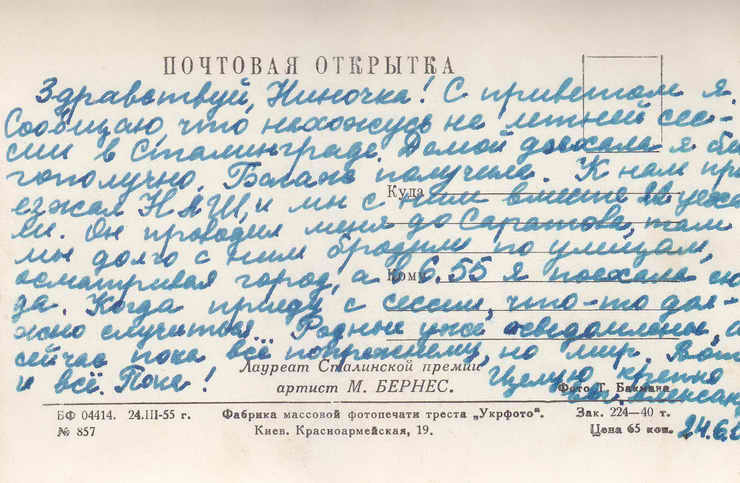 ПОЧТОВАЯ ОТКРЫТКА
Здравствуй, Ниночка! С приветом я.
Сообщаю, что нахожусь на летней сес-
сии в Сталинграде. Домой доехала я бла
гополучно. получила. К нам при
Куда
езжал и мы с ним вместе уезжа
ли. Он проводил меня до Саратова, там
мы долго с ним бродили по улицам,
осматривая город, а в 6.55 я поехала сю
Кому
да. Когда приеду с сессии, что-то дол-
жно случиться. Родные уже осведомлены, а
сейчас пока всё попрежнему, но мир. Вот
и всё. Пока! Целую крепко
Лауреат Сталинской премии
артист М. БЕРНЕС.
Фото Г. Бакмана
БФ 04414. 24.III-55 г. Фабрика массовой фотопечати треста „Укрфото“. Зак. 224—40 т.
№ 857 Киев. Красноармейская, 19. Цена 65 коп. 24.6.